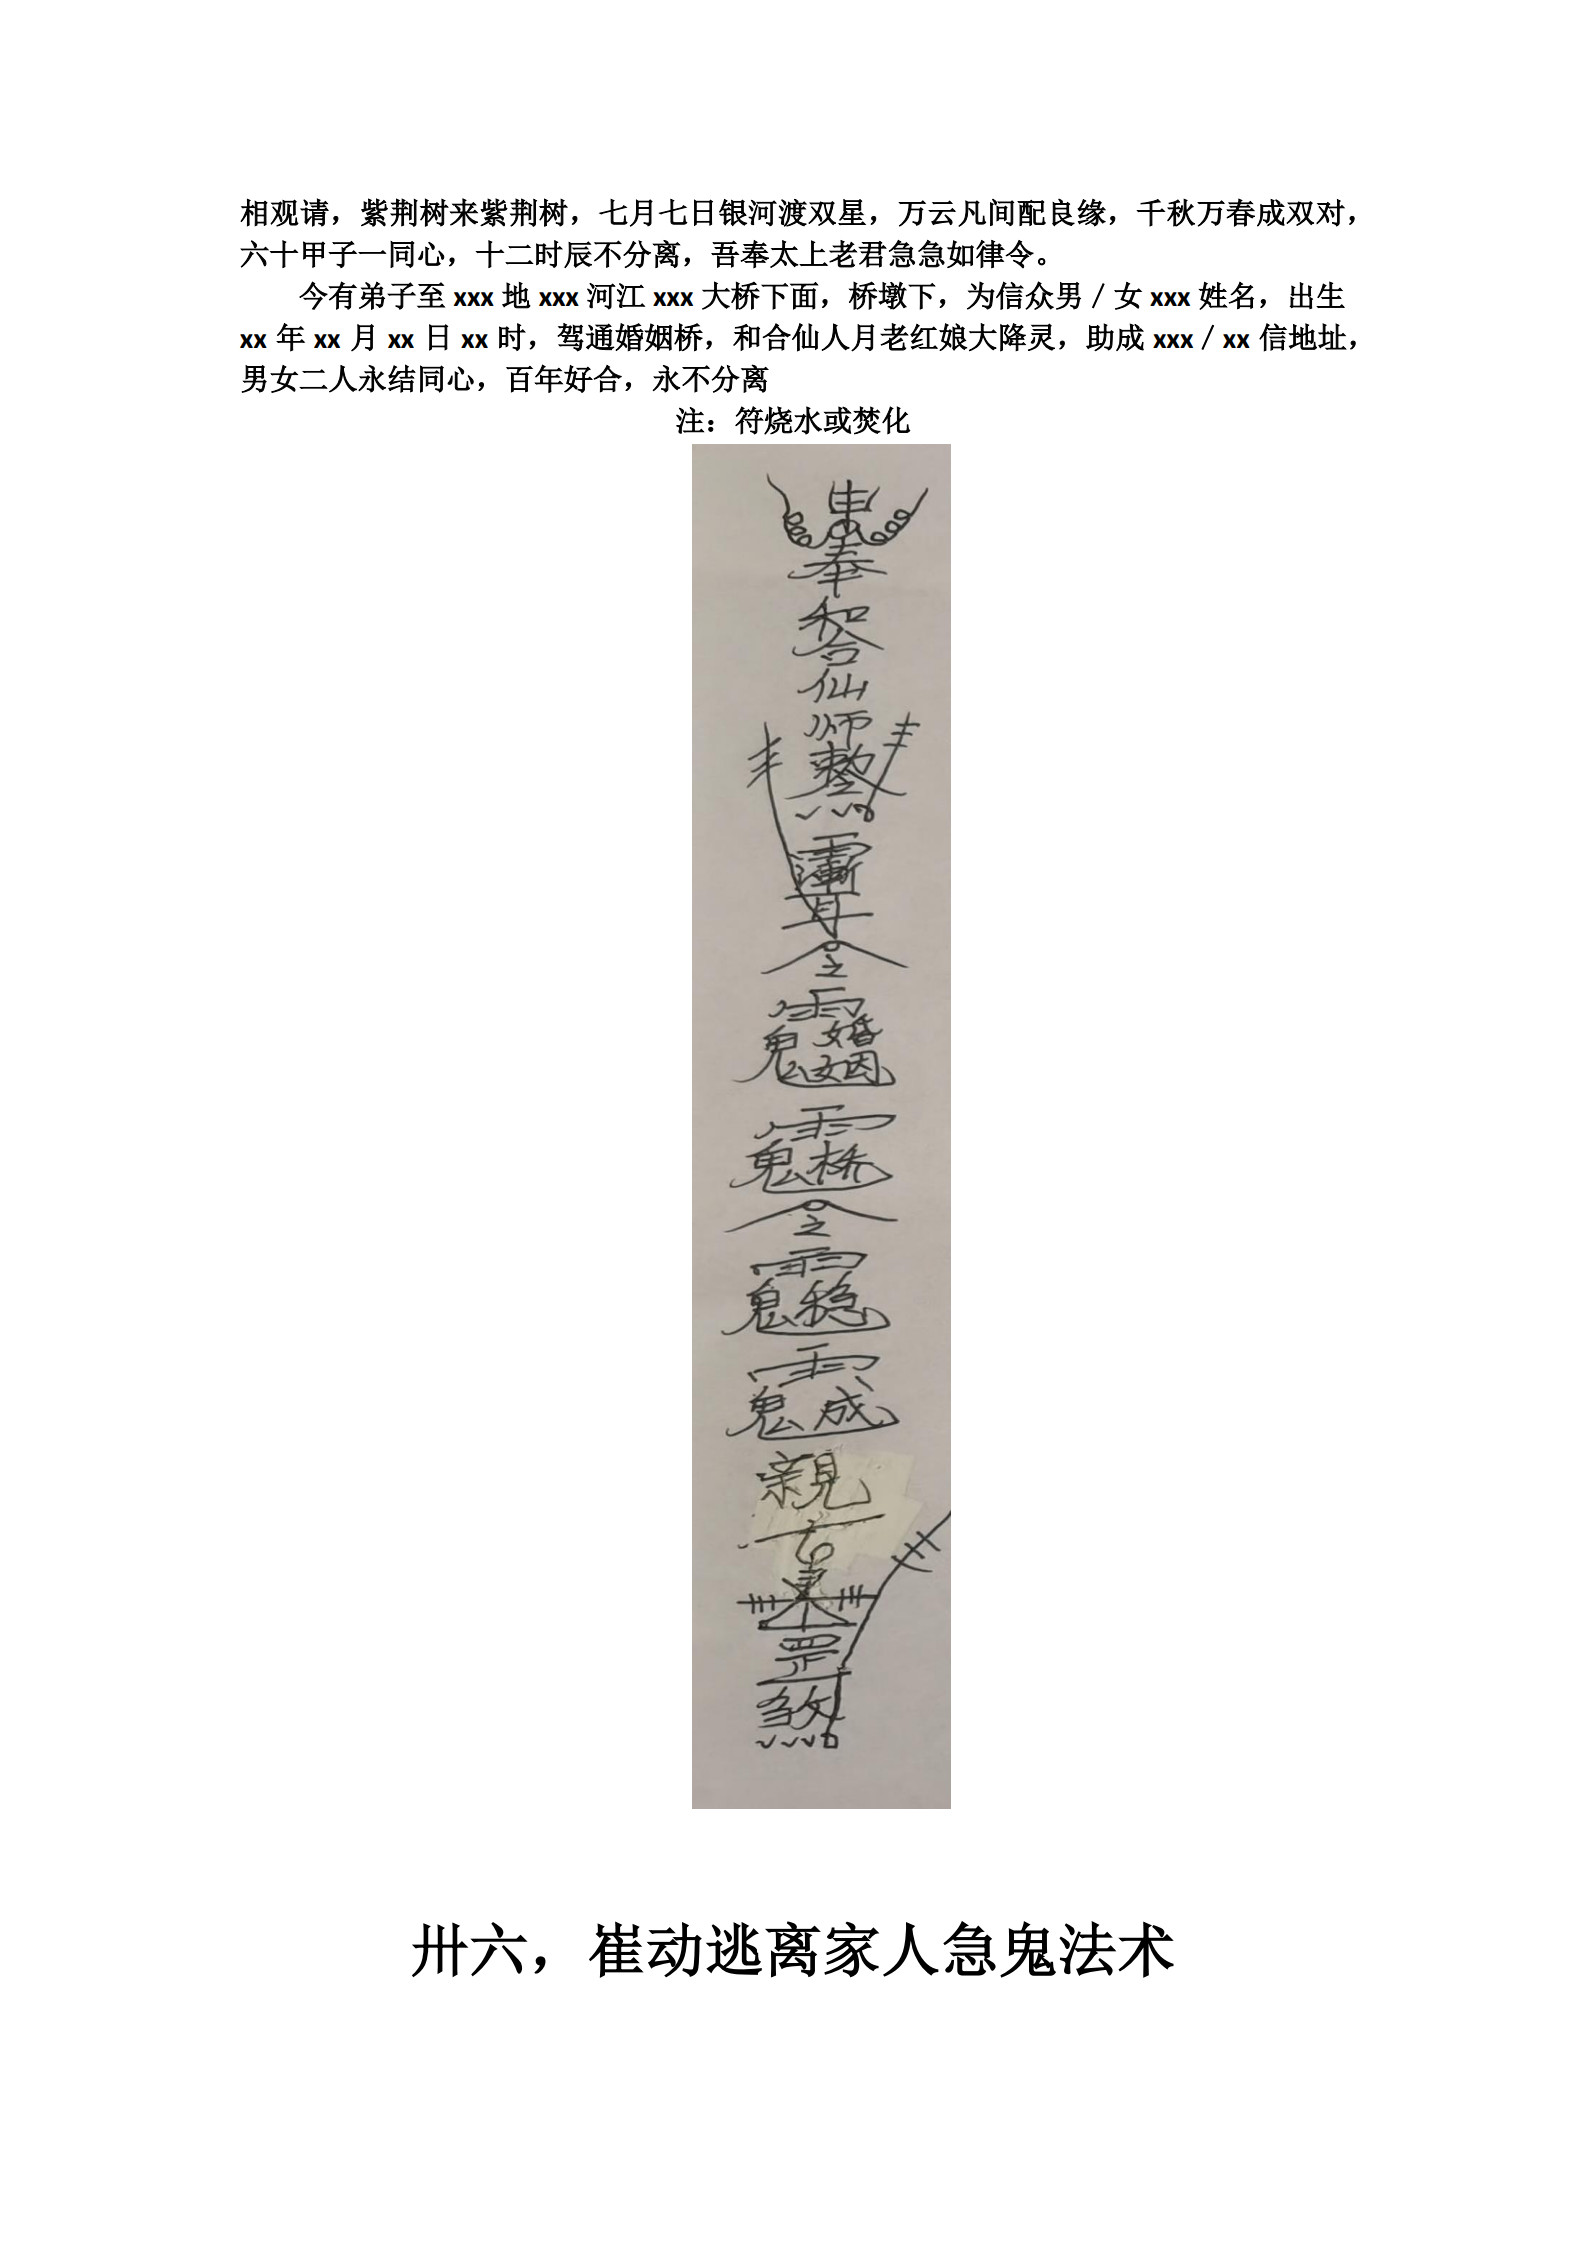 相观请，紫荆树来紫荆树，七月七日银河渡双星，万云凡间配良缘，千秋万春成双对，
六十甲子一同心，十二时辰不分离，吾奉太上老君急急如律令。
今有弟子至 xxx 地 xxx 河江 xxx 大桥下面，桥墩下，为信众男／女 xxx 姓名，出生
xx 年 xx 月 xx 日 xx 时，驾通婚姻桥，和合仙人月老红娘大降灵，助成 xxx／xx 信地址，
男女二人永结同心，百年好合，永不分离
注：符烧水或焚化
奉
和
合
仙
师
敕
令
婚
姻
鬼
桥
令
鬼稳
鬼成
親
罡
煞
卅六，崔动逃离家人急鬼法术